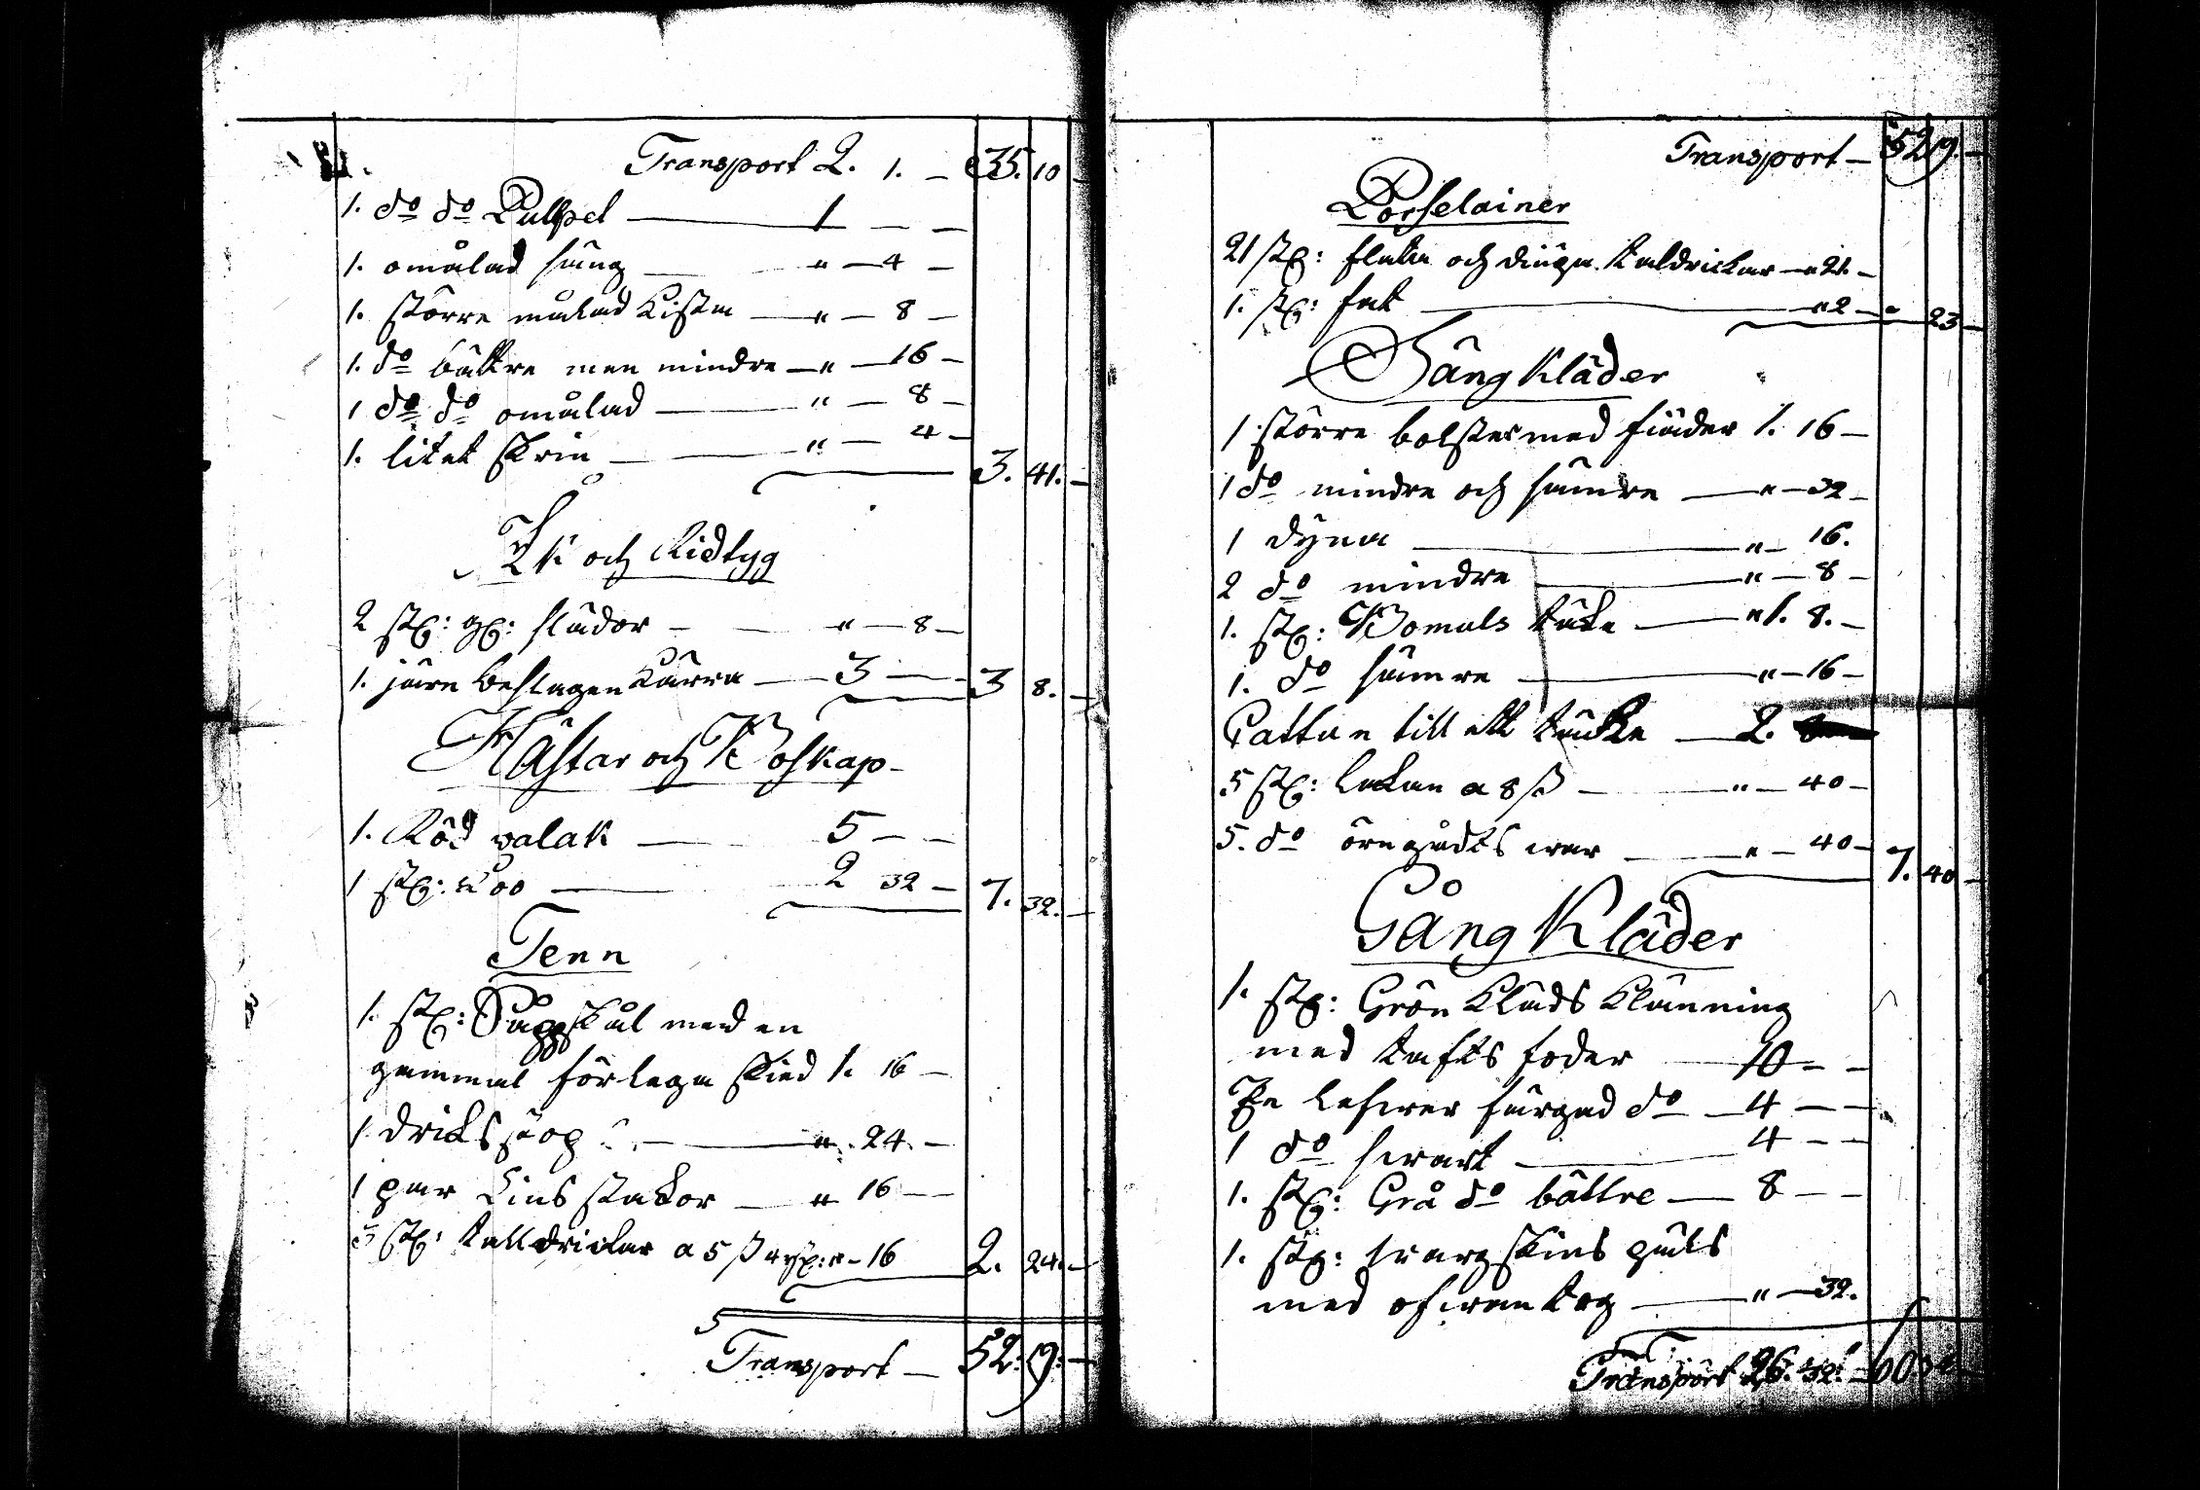 Transport 2. 1. — 35. 10 —
1. do do Pullpet — 1 — —
1. omålad säng — " — 4 —
1. större målad Kista — " — 8 —
1. do bättre men mindre — " — 16 —
1 do do omålad — " — 8 —
1. litet skrin — " — 4 — 3. 41. —
Åk och Ridtyg
2 st: gl: slädor — " — 8 —
1. järn beslagen Kärra — 3 — — 3 8. —
Hästar och Boskap
1. Röd valak — 5 — —
1 st: Koo — 2 32 — 7. 32. —
Tenn
1. st: Supp skål med en
gammal förlega sked 1. 16 —
1 dricks stop — " 24. —
1 par Lius stakor — " 16 —
5 st: talldrickar a 5 ß " — 16 2. 24. —
Transport — 52: 9: —
Transport — 52 9. —
Porselainer
21 st: flata och diupa taldrickar — " 21. —
1. st: fat — " 2 — " 23 —
Säng Kläder
1 större bolster med fiäder 1. 16 —
1 do mindre och sämre — " — 32 —
1 dyna — " — 16.
2 do mindre — " — 8 —
1. st: Bomuls täke — " 1. 8. —
1. do sämre — " — 16 —
Cattun till ett täcke — 2.
5 st: lakan a 8 ß — " — 40 —
5. do örngådts war — " — 40 — 7. 40 —
Gång Kläder
1. st: Grön Kläds Klänning
med tafts foder — 10 — —
En lefwer färgad do — 4 — —
1 do swart — 4 — —
1. st: Grå do bättre — 8 — —
1. st: wargskins päls
med ofwan tyg — " — 32.
Transport 26. 32. — 60 32 —